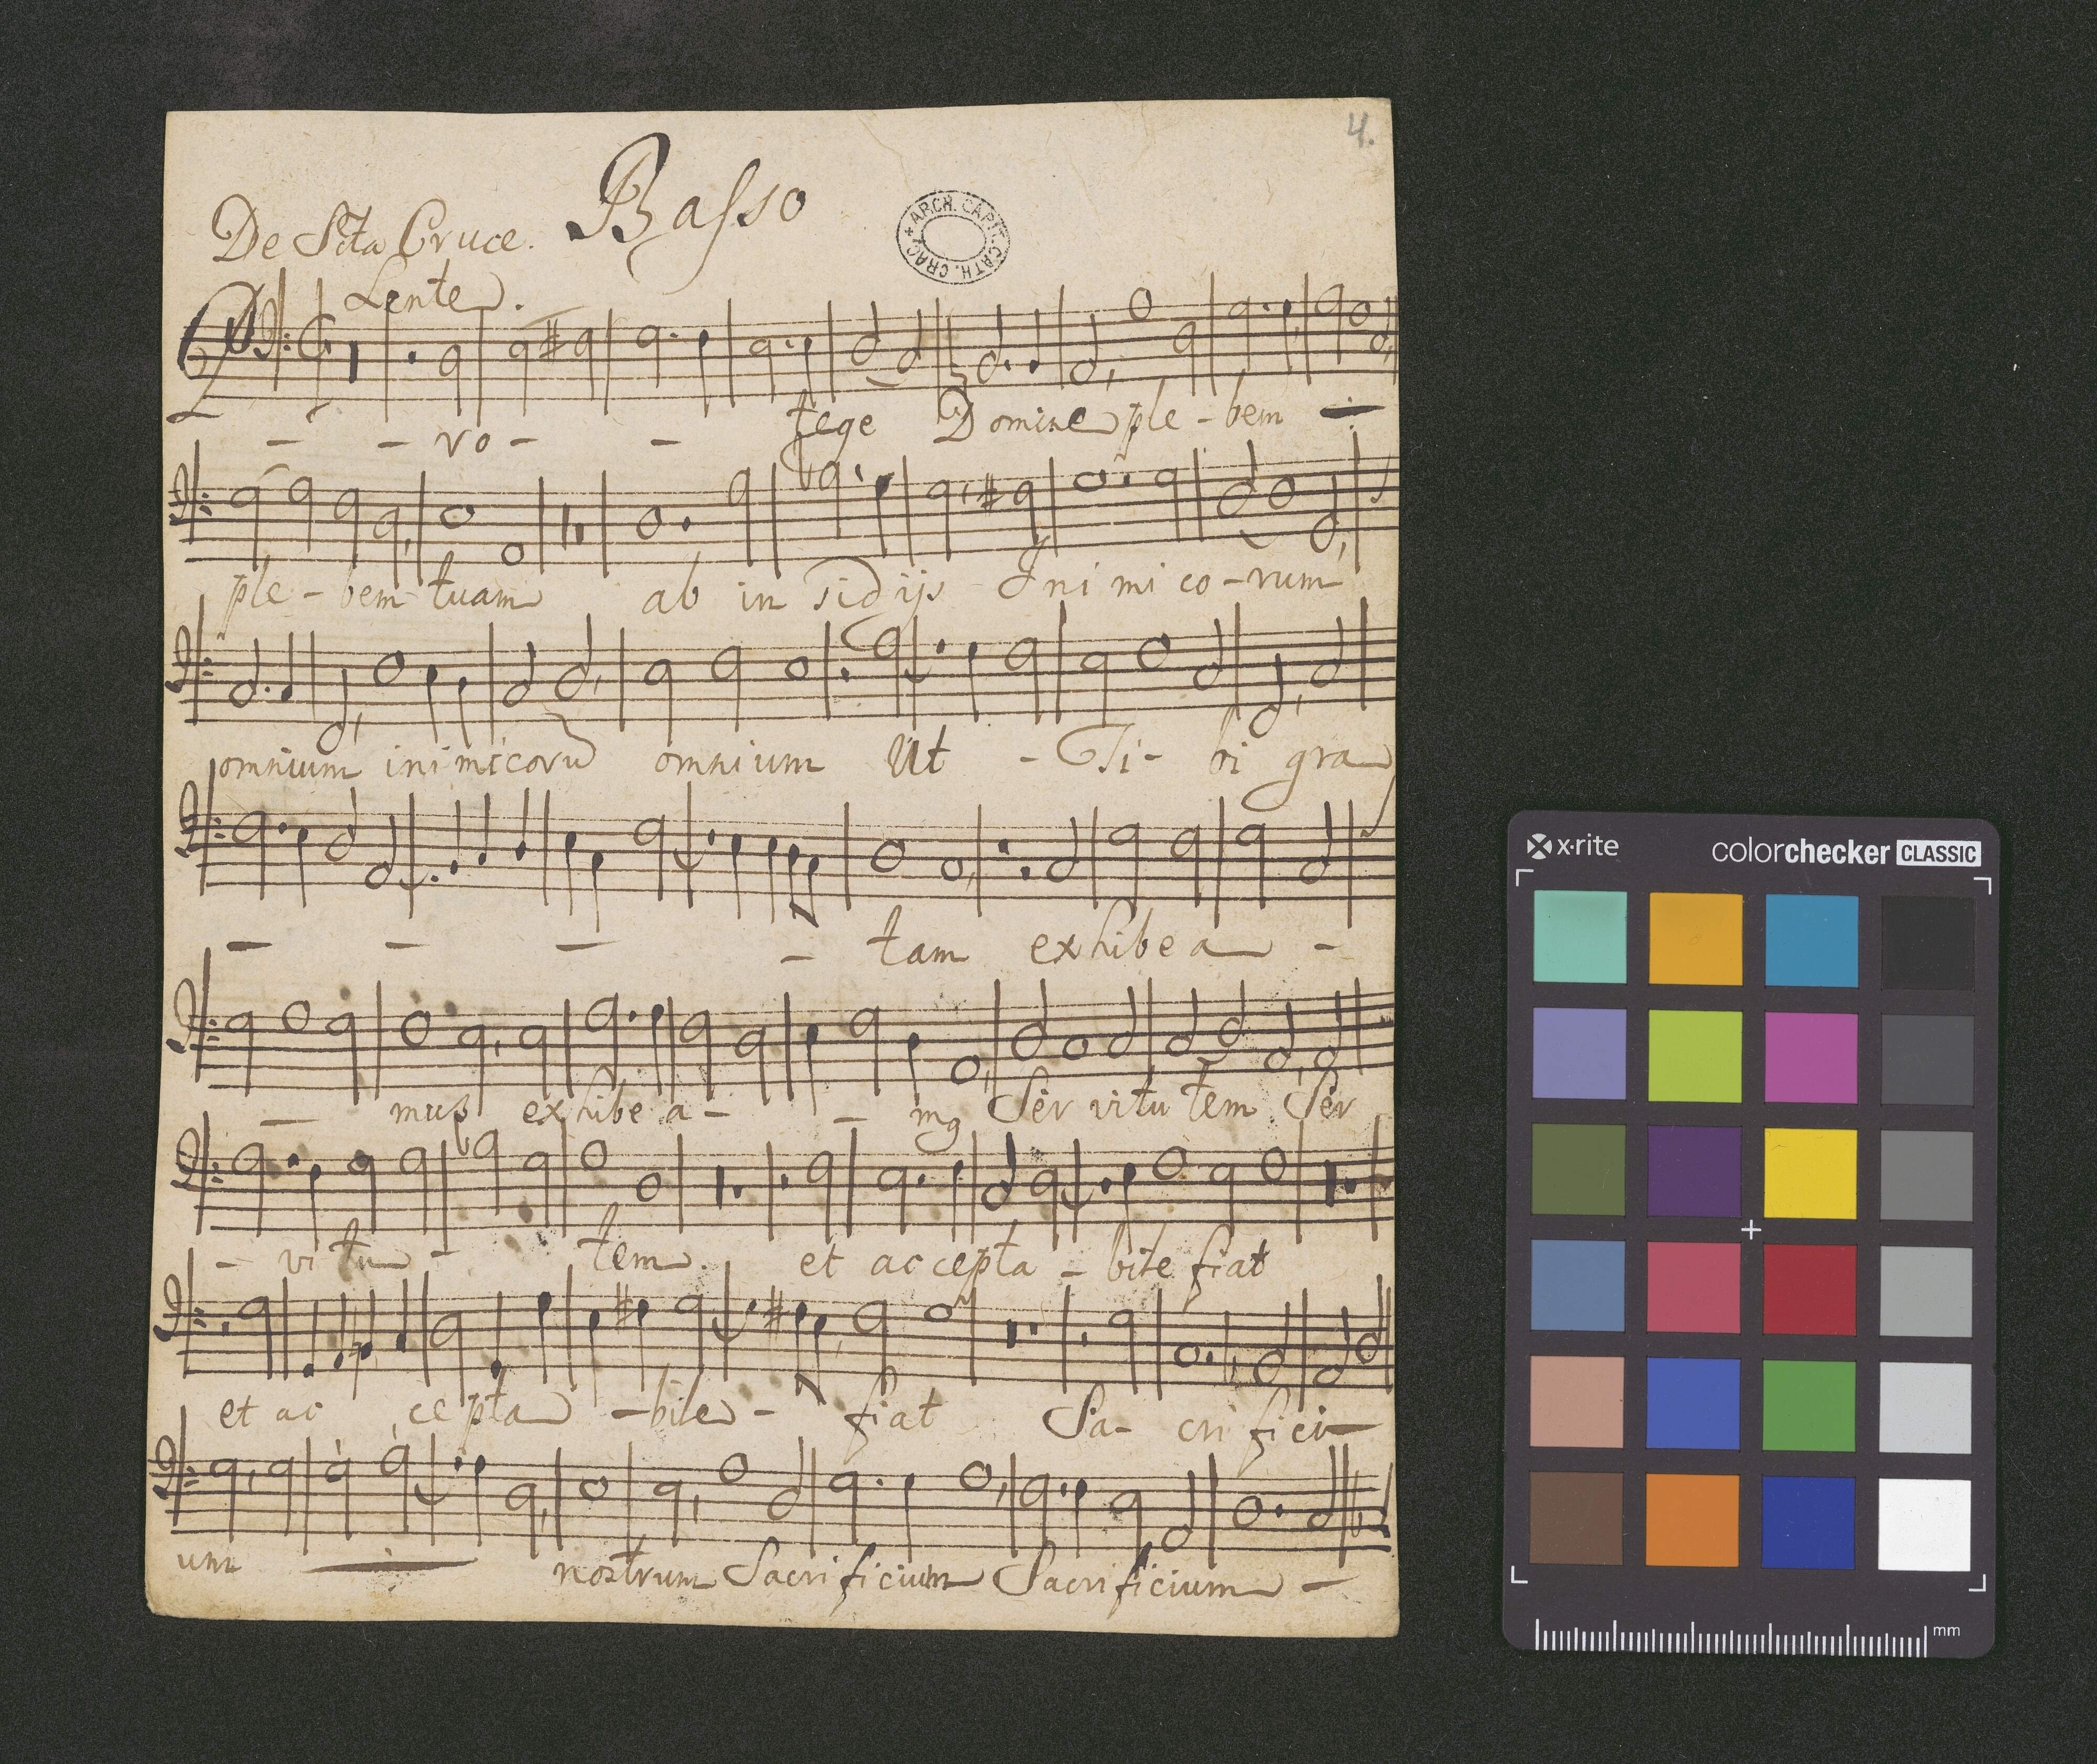 4.
Basso
De Scta Cruce.
ARCH. CAPIT. CATH. CRAC.
Lente.
P - - ro - - tege Domine ple - bem
ple - bem tuam ab in sidijs Ini mi co - rum
omnium inimicorū omnium Ut - Ti - bi gra
- - - - tam exhibe a -
- mus exhibe a - - mg Ser vitu tem Ser
- vi tu - tem. et accepta - bile fiat
et ac cepta - bile - fiat Sa - cri fici
um nostrum Sacrificium Sacrificium -
x·rite
colorchecker CLASSIC
mm